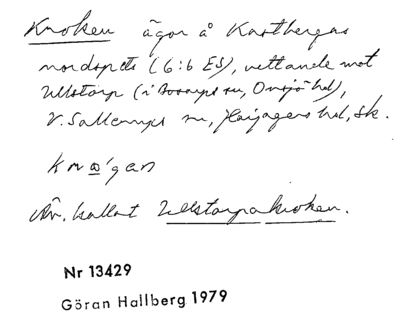 Knoken ägor å Kastbergas
nordspets (6:b ES), vettande mot
Ullstorp (i Bosarps sn, Onsjö hd),
V. Sallerups sn, Harjagers hd, Sk.
knω'gan
Äv. kallat Ullstorpaknoken.
Nr 13429
Göran Hallberg 1979